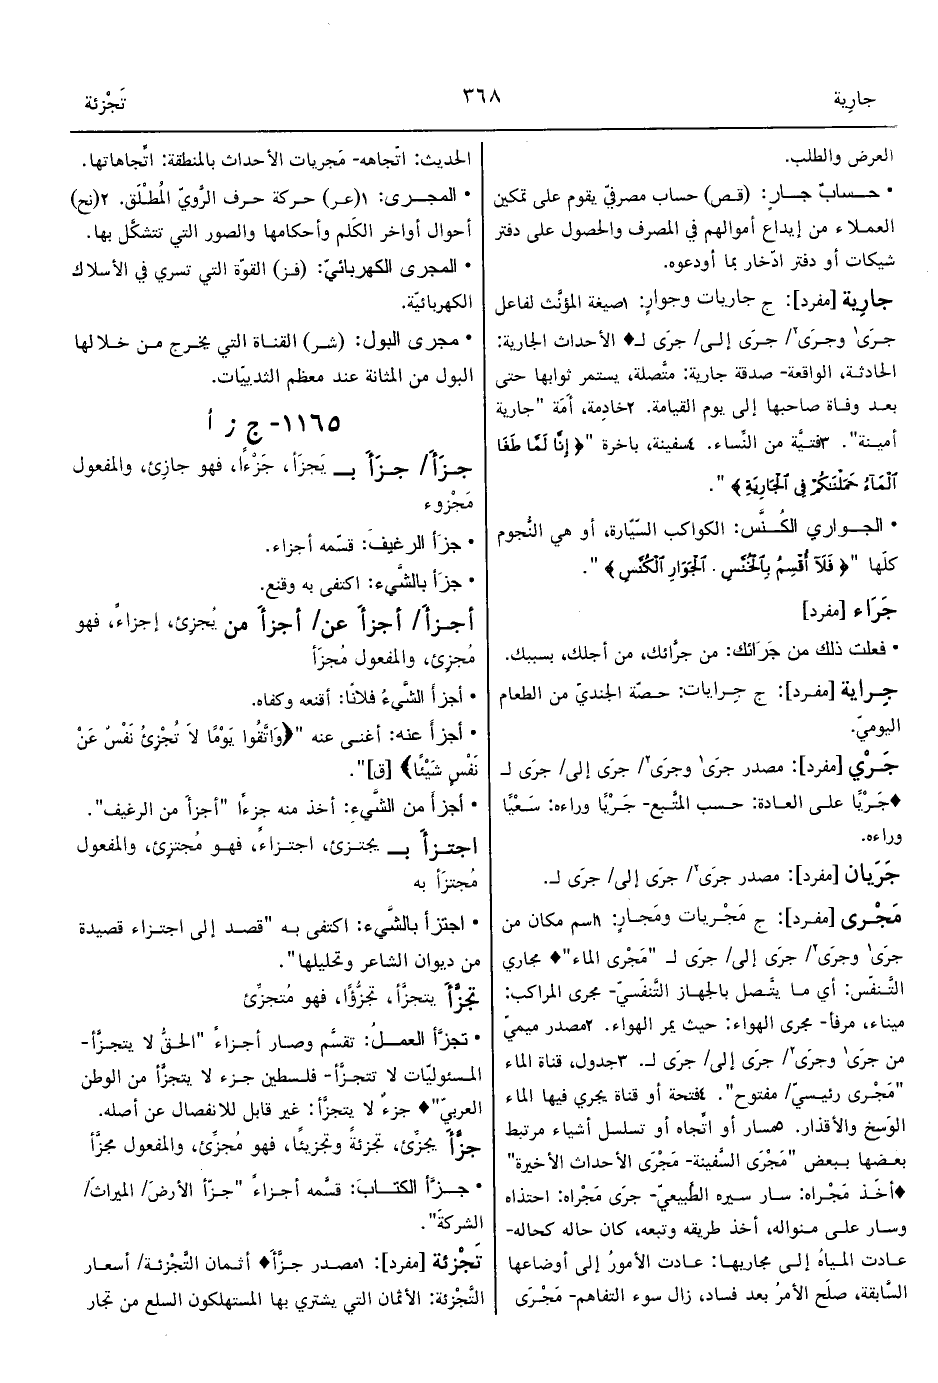 جارِية
٣٦٨
تَجْزئة
العرض والطلب.
• حســابٌ جــارٍ: (قـص) حساب مصرفيّ يقوم على تمكين
العمـلاء من إيداع أموالهم في المصرف والحصول على دفتر
شيكات أو دفتر ادّخار بما أودعوه.
جارِية [مفرد]: ج جاريات وجوارٍ: ١صيغة المؤنَّث لفاعل
جـرَى١ وجرَى٢/ جـرَى إلـى/ جرَى لـ♦ الأحداث الجارية:
الحادثـة، الواقعة- صدقة جارية: متَّصلة، يستمر ثوابها حتى
بعـد وفـاة صاحبها إلى يوم القيامة. ٢خادِمة، أمَة "جارية
أمينـة". ٣فتيَّة من النَّساء. ٤سفينة، باخرة "﴿إِنَّا لَمَّا طَغَا
ٱلْمَآءُ حَمَلْنَٰكُمْ فِي ٱلْجَارِيَةِ﴾".
• الجــواري الكُنــَّس: الكواكب السَّيّارة، أو هي النُّجوم
كلّها "﴿فَلَآ أُقْسِمُ بِٱلْخُنَّسِ. ٱلْجَوَارِ ٱلْكُنَّسِ﴾".
جَرَاء [مفرد]
• فعلت ذلك من جَرَائك: من جرَّائك، من أجلك، بسببك.
جِـراية [مفرد]: ج جِـرايات: حصّة الجنديّ من الطعام
اليوميّ.
جَـرْي [مفرد]: مصدر جرَى١ وجرَى٢/ جرَى إلى/ جرَى لـ
♦جَـرْيًا على العادة: حسب المتَّبع- جَـرْيًا وراءه: سَـعْيًا
وراءه.
جَرَيان [مفرد]: مصدر جرَى٢/ جرَى إلى/ جرَى لـ.
مَجْرى [مفرد]: ج مَجْريات ومَجارٍ: ١اسم مكان من
جرَى١ وجرَى٢/ جرَى إلى/ جرَى لـ "مَجْرى الماء"♦ مجاري
التَّنفّس: أي ما يتَّصل بالجهاز التَّنفسيّ- مجرى المراكب:
ميناء، مرفأ- مجرى الهواء: حيث يمر الهواء. ٢مصدر ميميّ
من جرَى١ وجرَى٢/ جرَى إلى/ جرَى لـ. ٣جدول، قناة الماء
"مَجْرى رئيسيّ/ مفتوح". ٤فتحة أو قناة يجري فيها الماء
الوَسِخ والأقذار. ٥مسار أو اتِّجاه أو تسلسل أشياء مرتبط
بعضها ببعض "مَجْرَى السَّفينة- مَجْرَى الأحداث الأخيرة"
♦أخَـذ مَجْراه: سـار سيره الطَّبيعيّ- جرَى مَجْراه: احتذاه
وسار على منواله، أخذ طريقه وتبعه، كان حاله كحاله-
عادت المياهُ إلـى مجاريهـا: عـادت الأمورُ إلى أوضاعها
السَّابقة، صلَح الأمرُ بعد فساد، زال سوء التفاهم- مَجْرَى
الحديث: اتّجاهه- مَجريات الأحداث بالمنطقة: اتِّجاهاتها.
• المجــرى: ١(عـر) حركة حرف الرَّويّ المُطْلَق. ٢(نح)
أحوال أواخر الكَلِم وأحكامها والصور التي تتشكَّل بها.
• المجرى الكهربائيّ: (فـز) القوّة التي تسري في الأسلاك
الكهربائيّة.
• مجرى البول: (شر) القناة التي يخرج مـن خـلالها
البول من المثانة عند معظم الثدييّات.
١١٦٥- ج ز أ
جـزَأَ/ جـزَأَ بــ يَجزَأ، جَزْءًا، فهو جازِئ، والمفعول
مَجْزوء
• جزَأ الرغيفَ: قسَّمه أجزاء.
• جزَأ بالشَّيء: اكتفى به وقنع.
أجـزأَ/ أجزأَ عن/ أجزأَ من يُجزِئ، إجزاءً، فهو
مُجزِئ، والمفعول مُجزَأ
• أجزأ الشَّيءُ فلانًا: أقنعه وكفاه.
• أجزأ عنه: أغنى عنه "﴿وَاتَّقُوا يَوْمًا لاَ تُجْزِئُ نَفْسٌ عَنْ
نَفْسٍ شَيْئًا﴾ [ق]".
• أجزأ من الشَّيء: أخذ منه جزءًا "أجزأ من الرغيف".
اجتـزأَ بــ يجتـزئ، اجتـزاءً، فهــو مُجتزِئ، والمفعول
مُجتزَأ به
• اجتزأ بالشَّيء: اكتفى بـه "قصد إلى اجتزاء قصيدة
من ديوان الشاعر وتحليلها".
تجزَّأَ يتجزَّأ، تجزُّؤًا، فهو مُتجزِّئ
• تجزَّأ العمــلُ: تقسَّم وصار أجزاءً "الحقُّ لا يتجزَّأ-
المسئوليّات لا تتجزَّأ- فلسطين جزء لا يتجزَّأ من الوطن
العربيّ"♦ جزءٌ لا يتجزَّأ: غير قابل للانفصال عن أصله.
جزَّأَ يجزِّئ، تجزئةً وتجزيئًا، فهو مُجزِّئ، والمفعول مجزَّأ
• جــزَّأ الكتــابَ: قسَّمه أجـزاءً "جزّأ الأرضَ/ الميراثَ/
الشركةَ".
تَجْزئة [مفرد]: ١مصدر جـزَّأَ♦ أثمان التَّجْزئـة/ أسعار
التَّجْزئة: الأثمان التي يشتري بها المستهلكون السلع من تجار